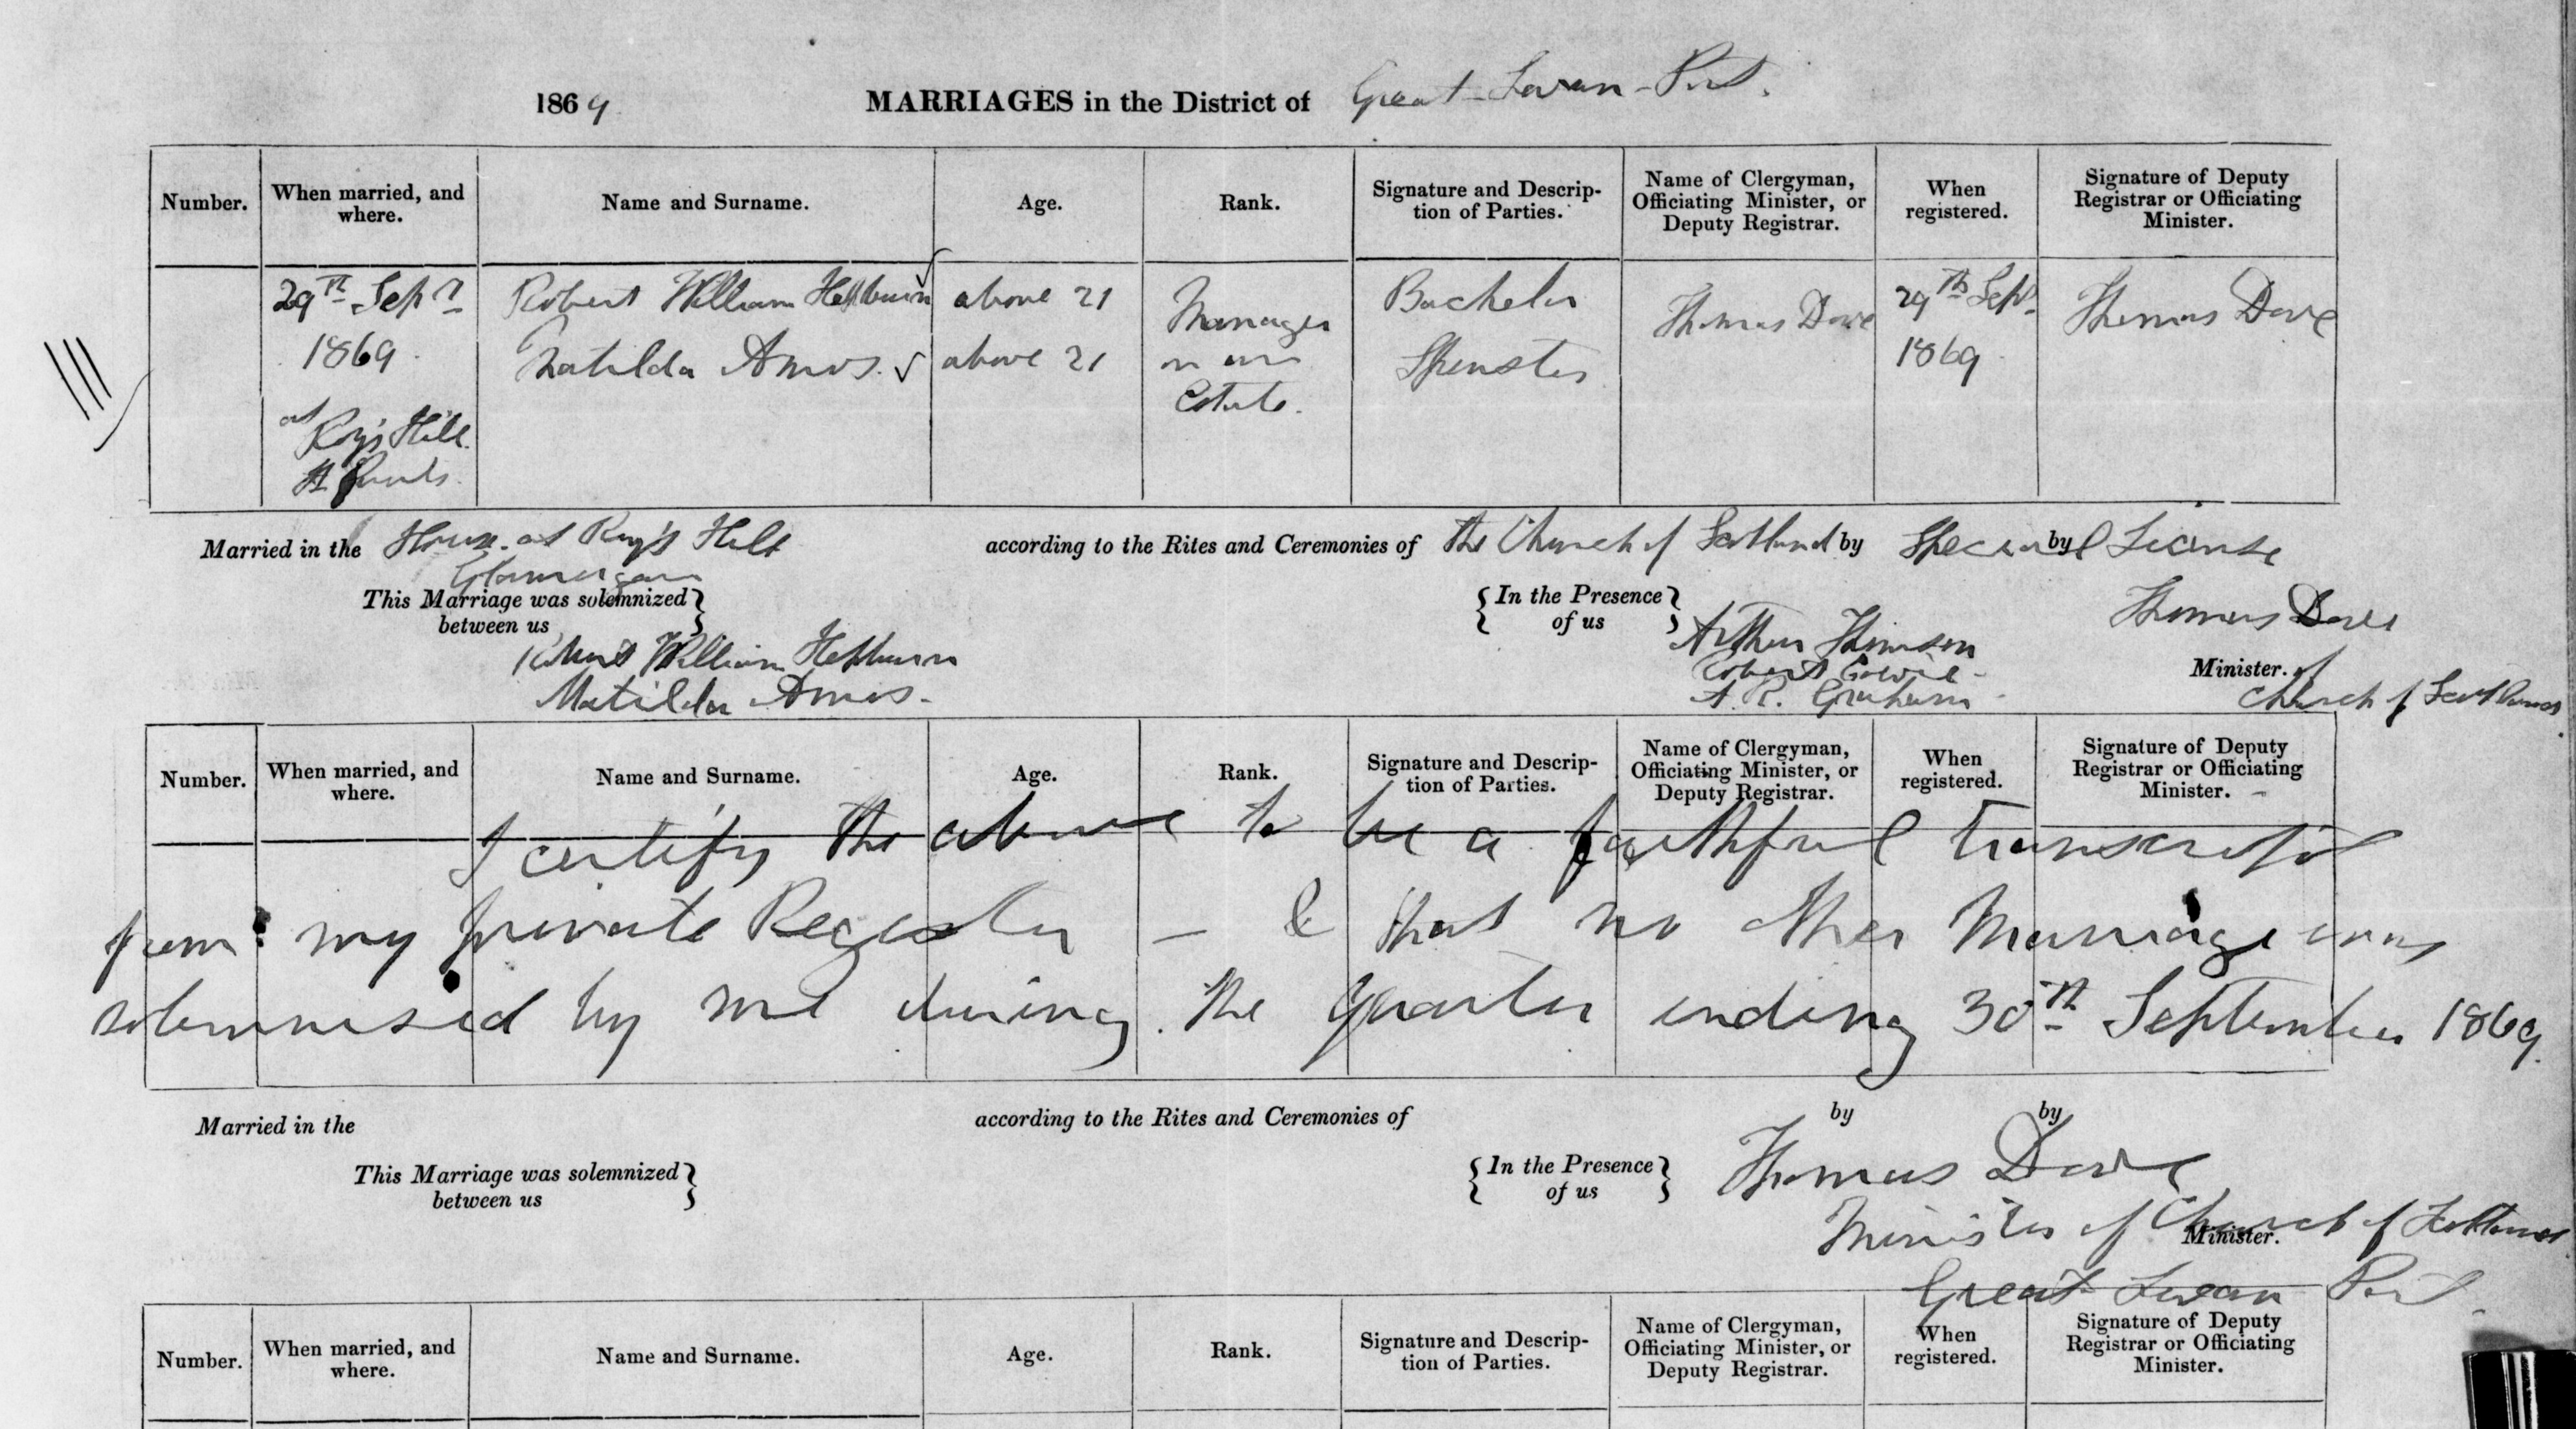 1869 MARRIAGES in the District of Great Swan Port.
Number. When married, and where. Name and Surname. Age. Rank. Signature and Description of Parties. Name of Clergyman, Officiating Minister, or Deputy Registrar. When registered. Signature of Deputy Registrar or Officiating Minister.
29th Sept Robert William Hepburn above 21 Manager Bachelor Thomas Dove 29th Sept Thomas Dove
1869 Matilda Amos. above 21 on an Spinster 1869
Estate.
at
Roy's Hill
Married in the House at Roy's Hill according to the Rites and Ceremonies of the Church of Scotland by Special by License
Glamorgan
This Marriage was solemnized between us In the Presence of us Thomas Dove
Robert William Hepburn Arthur Thomson
Robert Minister. of
Matilda Amos. A. R. Graham Church of Scotland
Number. When married, and where. Name and Surname. Age. Rank. Signature and Description of Parties. Name of Clergyman, Officiating Minister, or Deputy Registrar. When registered. Signature of Deputy Registrar or Officiating Minister.
I certify the above to be a faithful transcript
from my private Register - & that no other Marriage was
solemnised by me during the quarter ending 30th September 1869.
Married in the according to the Rites and Ceremonies of by by
This Marriage was solemnized between us In the Presence of us Thomas Dove
Minister of Church of Scotland
Minister.
Great Swan Port.
Number. When married, and where. Name and Surname. Age. Rank. Signature and Description of Parties. Name of Clergyman, Officiating Minister, or Deputy Registrar. When registered. Signature of Deputy Registrar or Officiating Minister.